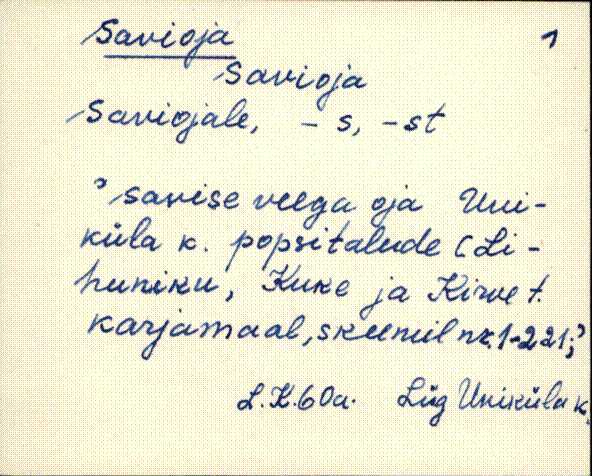 Savioja 1
Savioja
Saviojale, - s, - st
ʾ savise veega oja Uni-
küla k. popsitalude (Li-
huniku, Kuke ja Kirve t.
karjamaal, skeemil nr. 1-221;ʾ
L.K. 60a. Lüg Uniküla k.